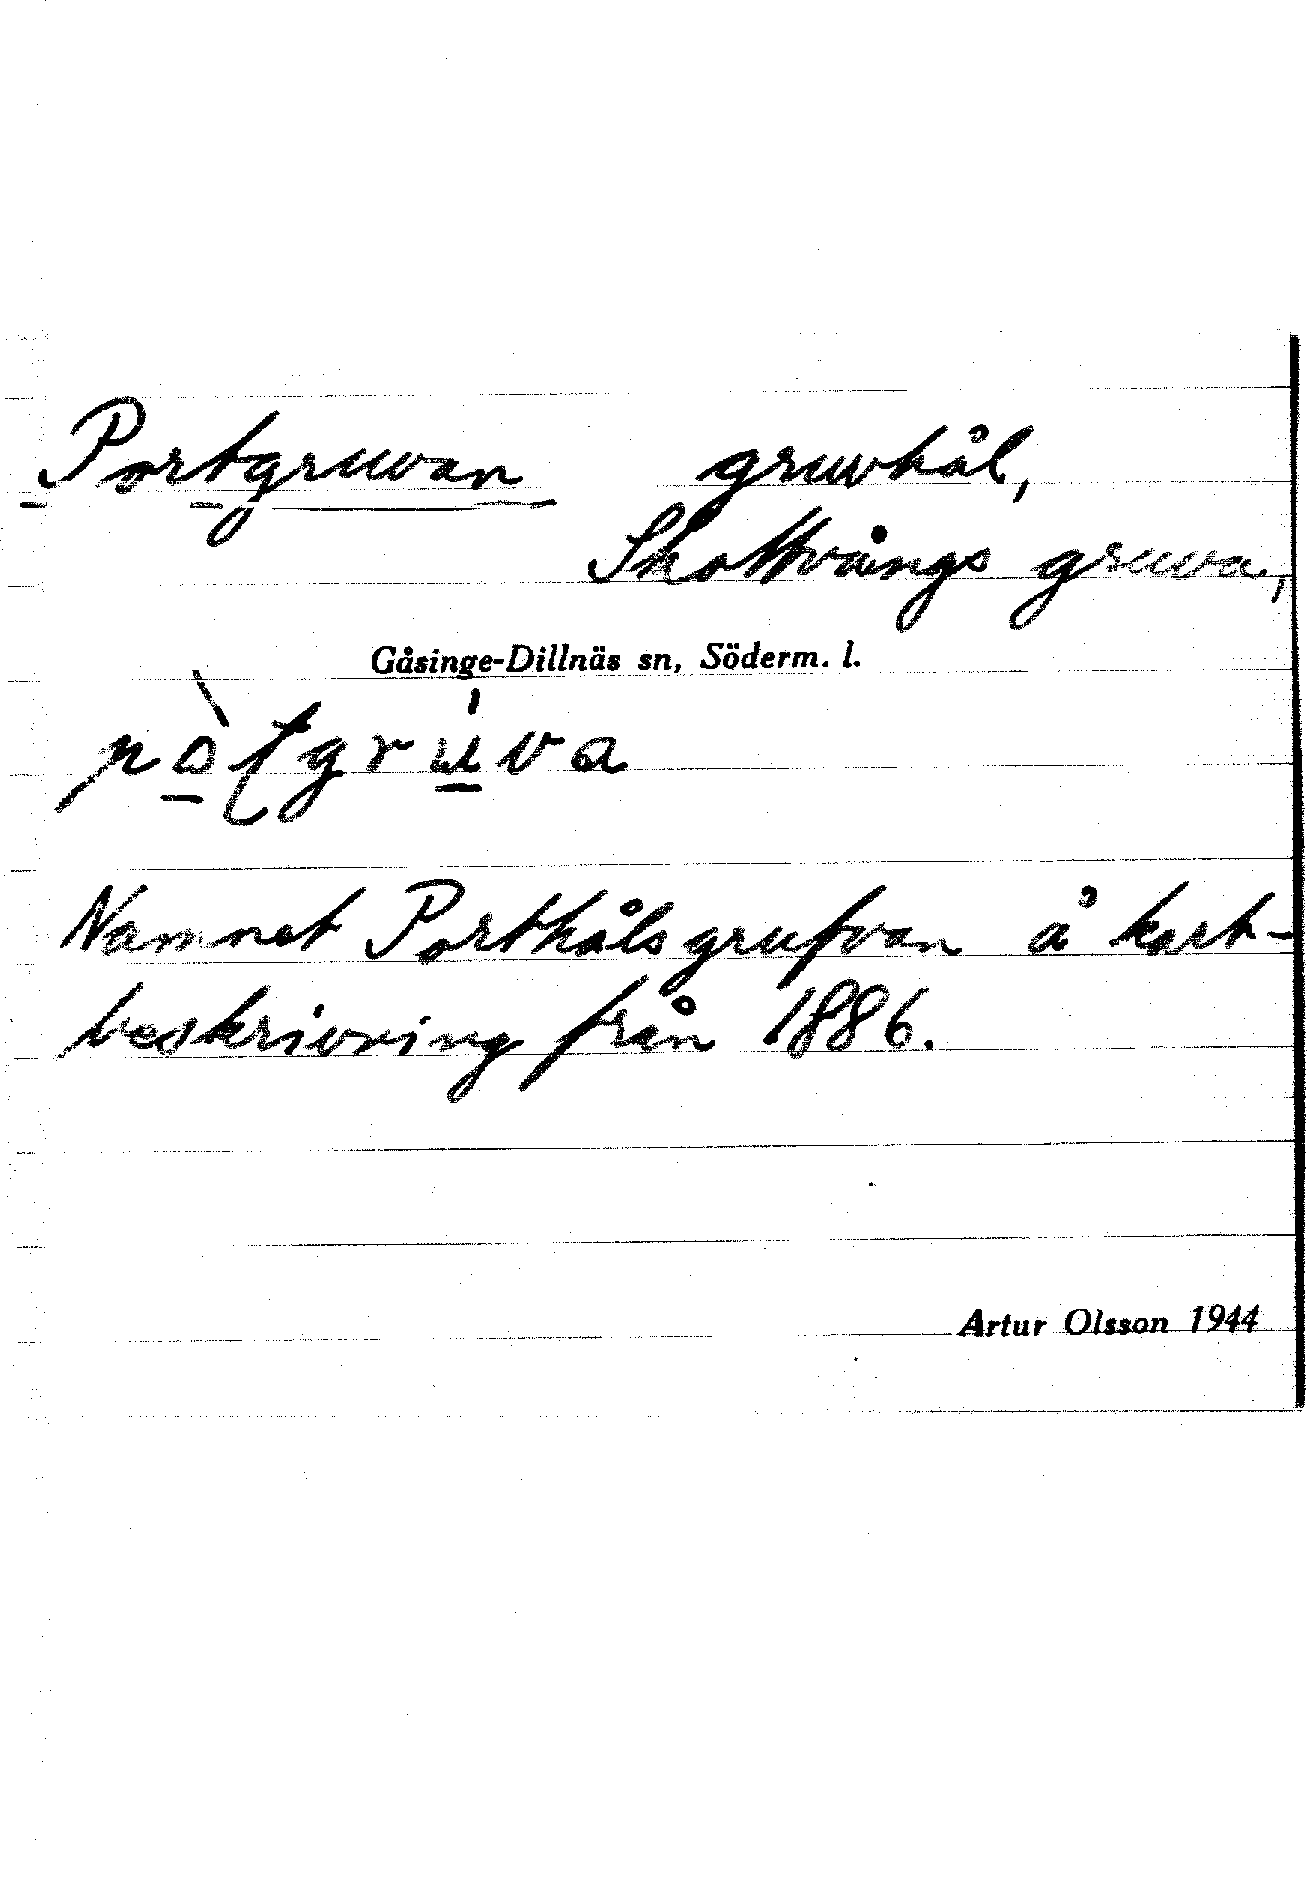 Portgruvan gruvhål,
Skottvångs gruva,
Gåsinge-Dillnäs sn, Söderm. l.
pò̱ʈgrú̱va
Namnet Porthålsgrufvan å kart-
beskrivning från 1886.
Artur Olsson 1944